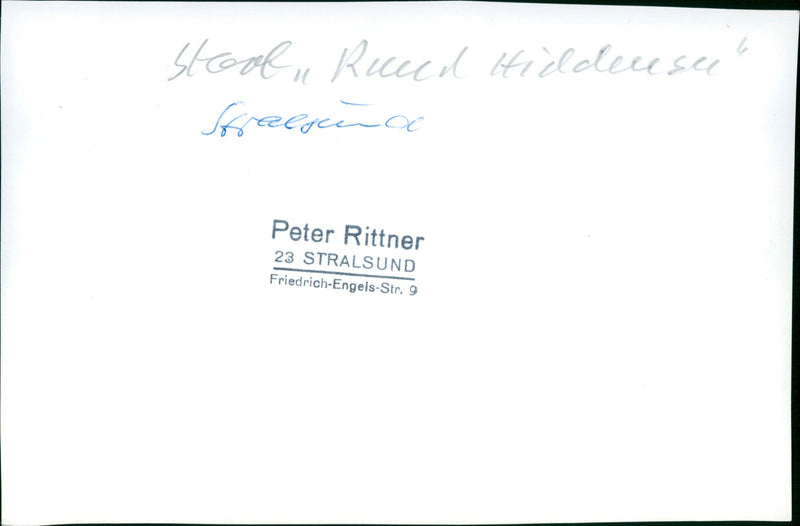 Start „Rund Hiddensee"
Stralsund
Peter Rittner
23 STRALSUND
Friedrich-Engels-Str. 9